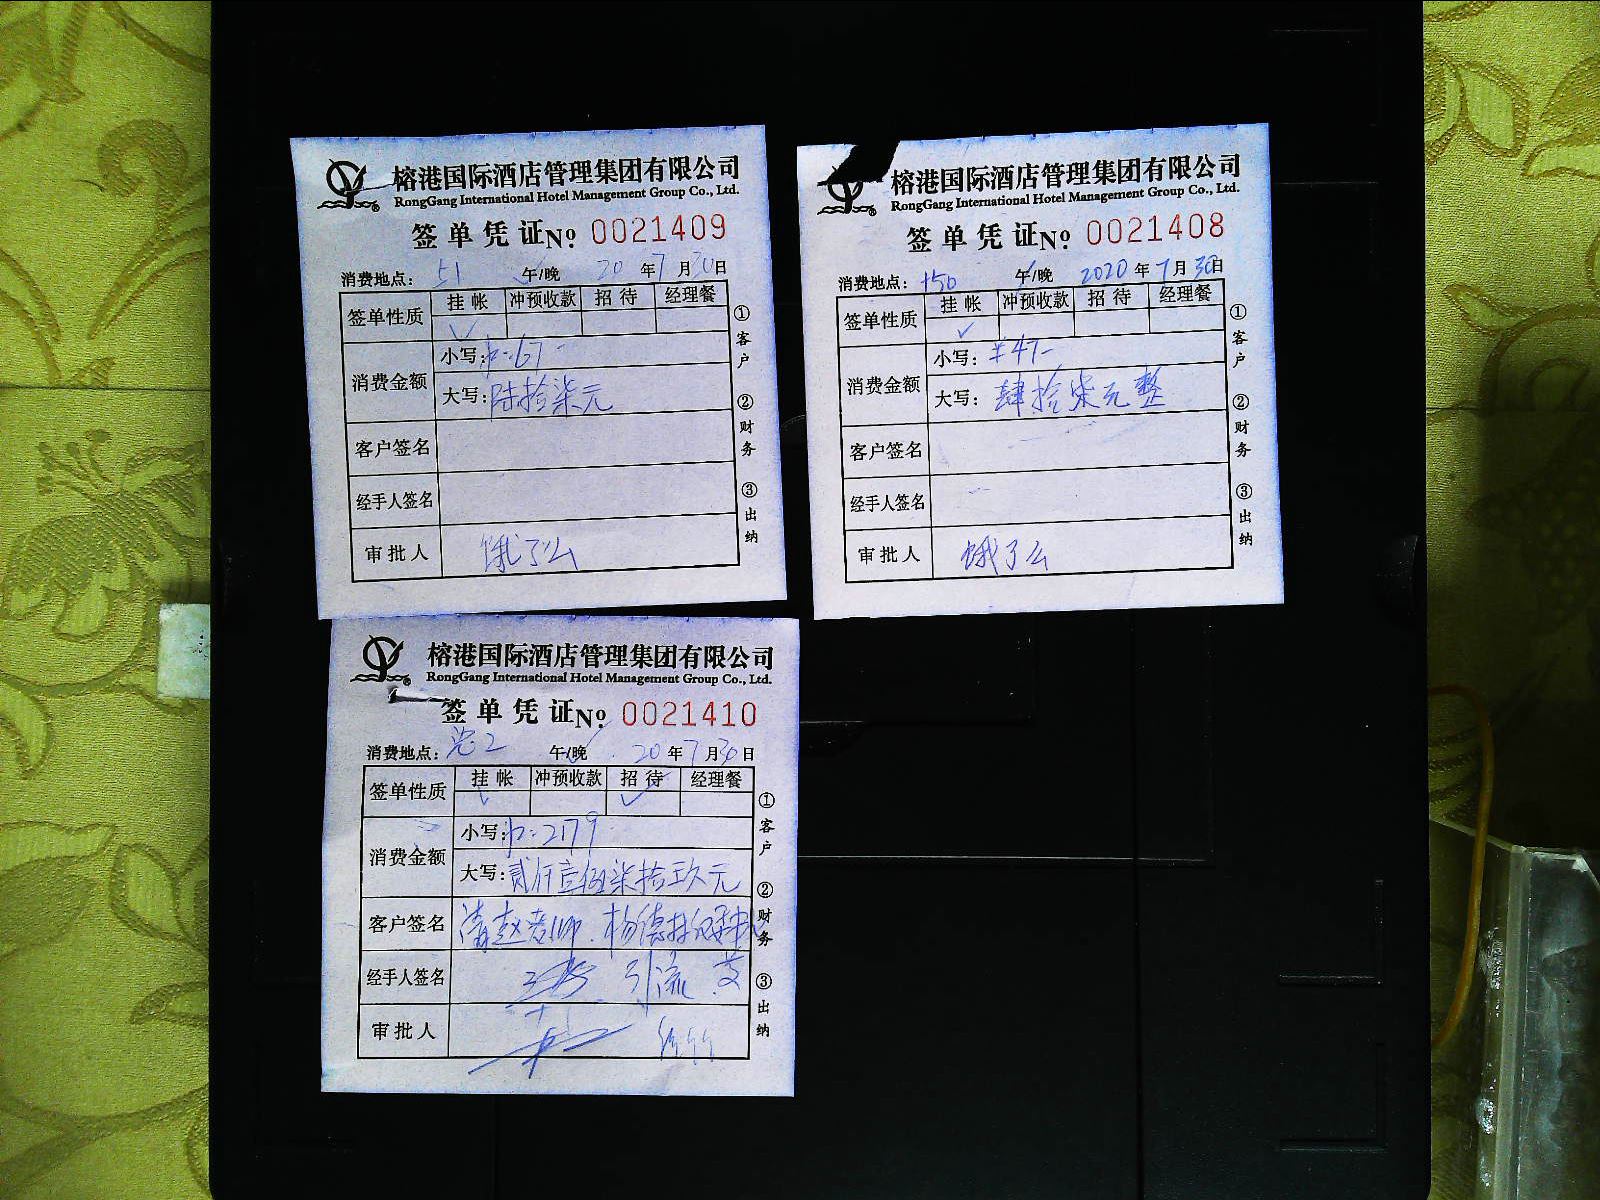 榕港国际酒店管理集团有限公司
RongGang International Hotel Management Group Co., Ltd.
签单凭证 No 0021409
消费地点: 51 午/晚 20 年 7 月 30 日
签单性质 挂帐 冲预收款 招待 经理餐
消费金额 小写: 67-
大写: 陆拾柒元
客户签名
经手人签名
审批人 饿了么
①客户 ②财务 ③出纳
榕港国际酒店管理集团有限公司
RongGang International Hotel Management Group Co., Ltd.
签单凭证 No 0021408
消费地点: 午/晚 2020 年 7 月 30 日
签单性质 挂帐 冲预收款 招待 经理餐
消费金额 小写: ¥47-
大写: 肆拾柒元整
客户签名
经手人签名
审批人 饿了么
①客户 ②财务 ③出纳
榕港国际酒店管理集团有限公司
RongGang International Hotel Management Group Co., Ltd.
签单凭证 No 0021410
消费地点: 午/晚 20 年 7 月 30 日
签单性质 挂帐 冲预收款 招待 经理餐
消费金额 小写: 2179
大写: 贰仟壹佰柒拾玖元
客户签名 赵老师. 杨德林
经手人签名 引流
审批人
①客户 ②财务 ③出纳